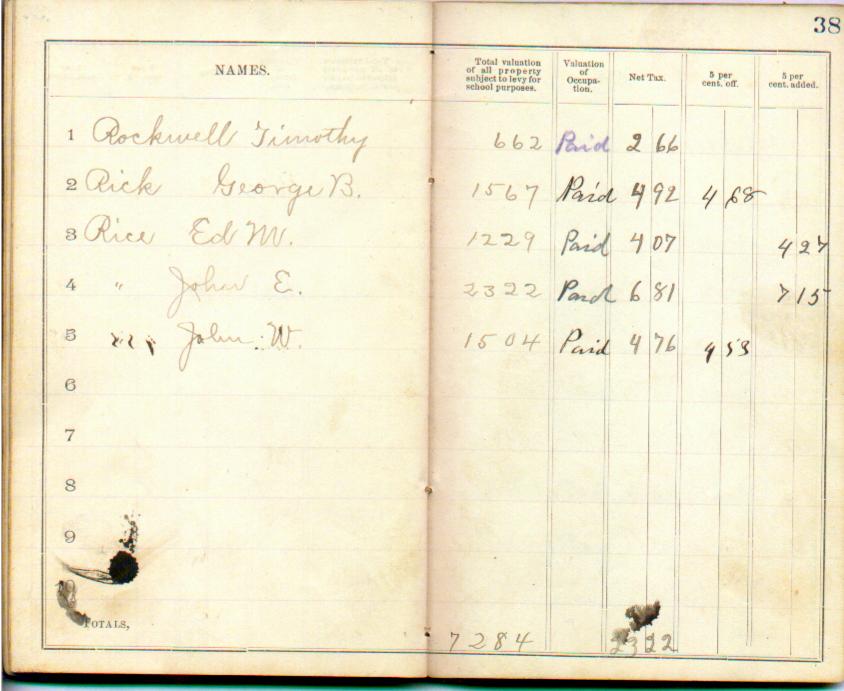 38
NAMES. Total valuation of all property subject to levy for school purposes. Valuation of Occupation. Net Tax. 5 per cent. off. 5 per cent. added.
1 Rockwell Timothy 662 Paid 2 66
2 Rick George B. 1567 Paid 4 92 4 68
3 Rice Ed M. 1229 Paid 4 07 4 27
4 " John E. 2322 Paid 6 81 7 15
5 " John W. 1504 Paid 4 76 4 53
6
7
8
9
TOTALS, 7284 23 22